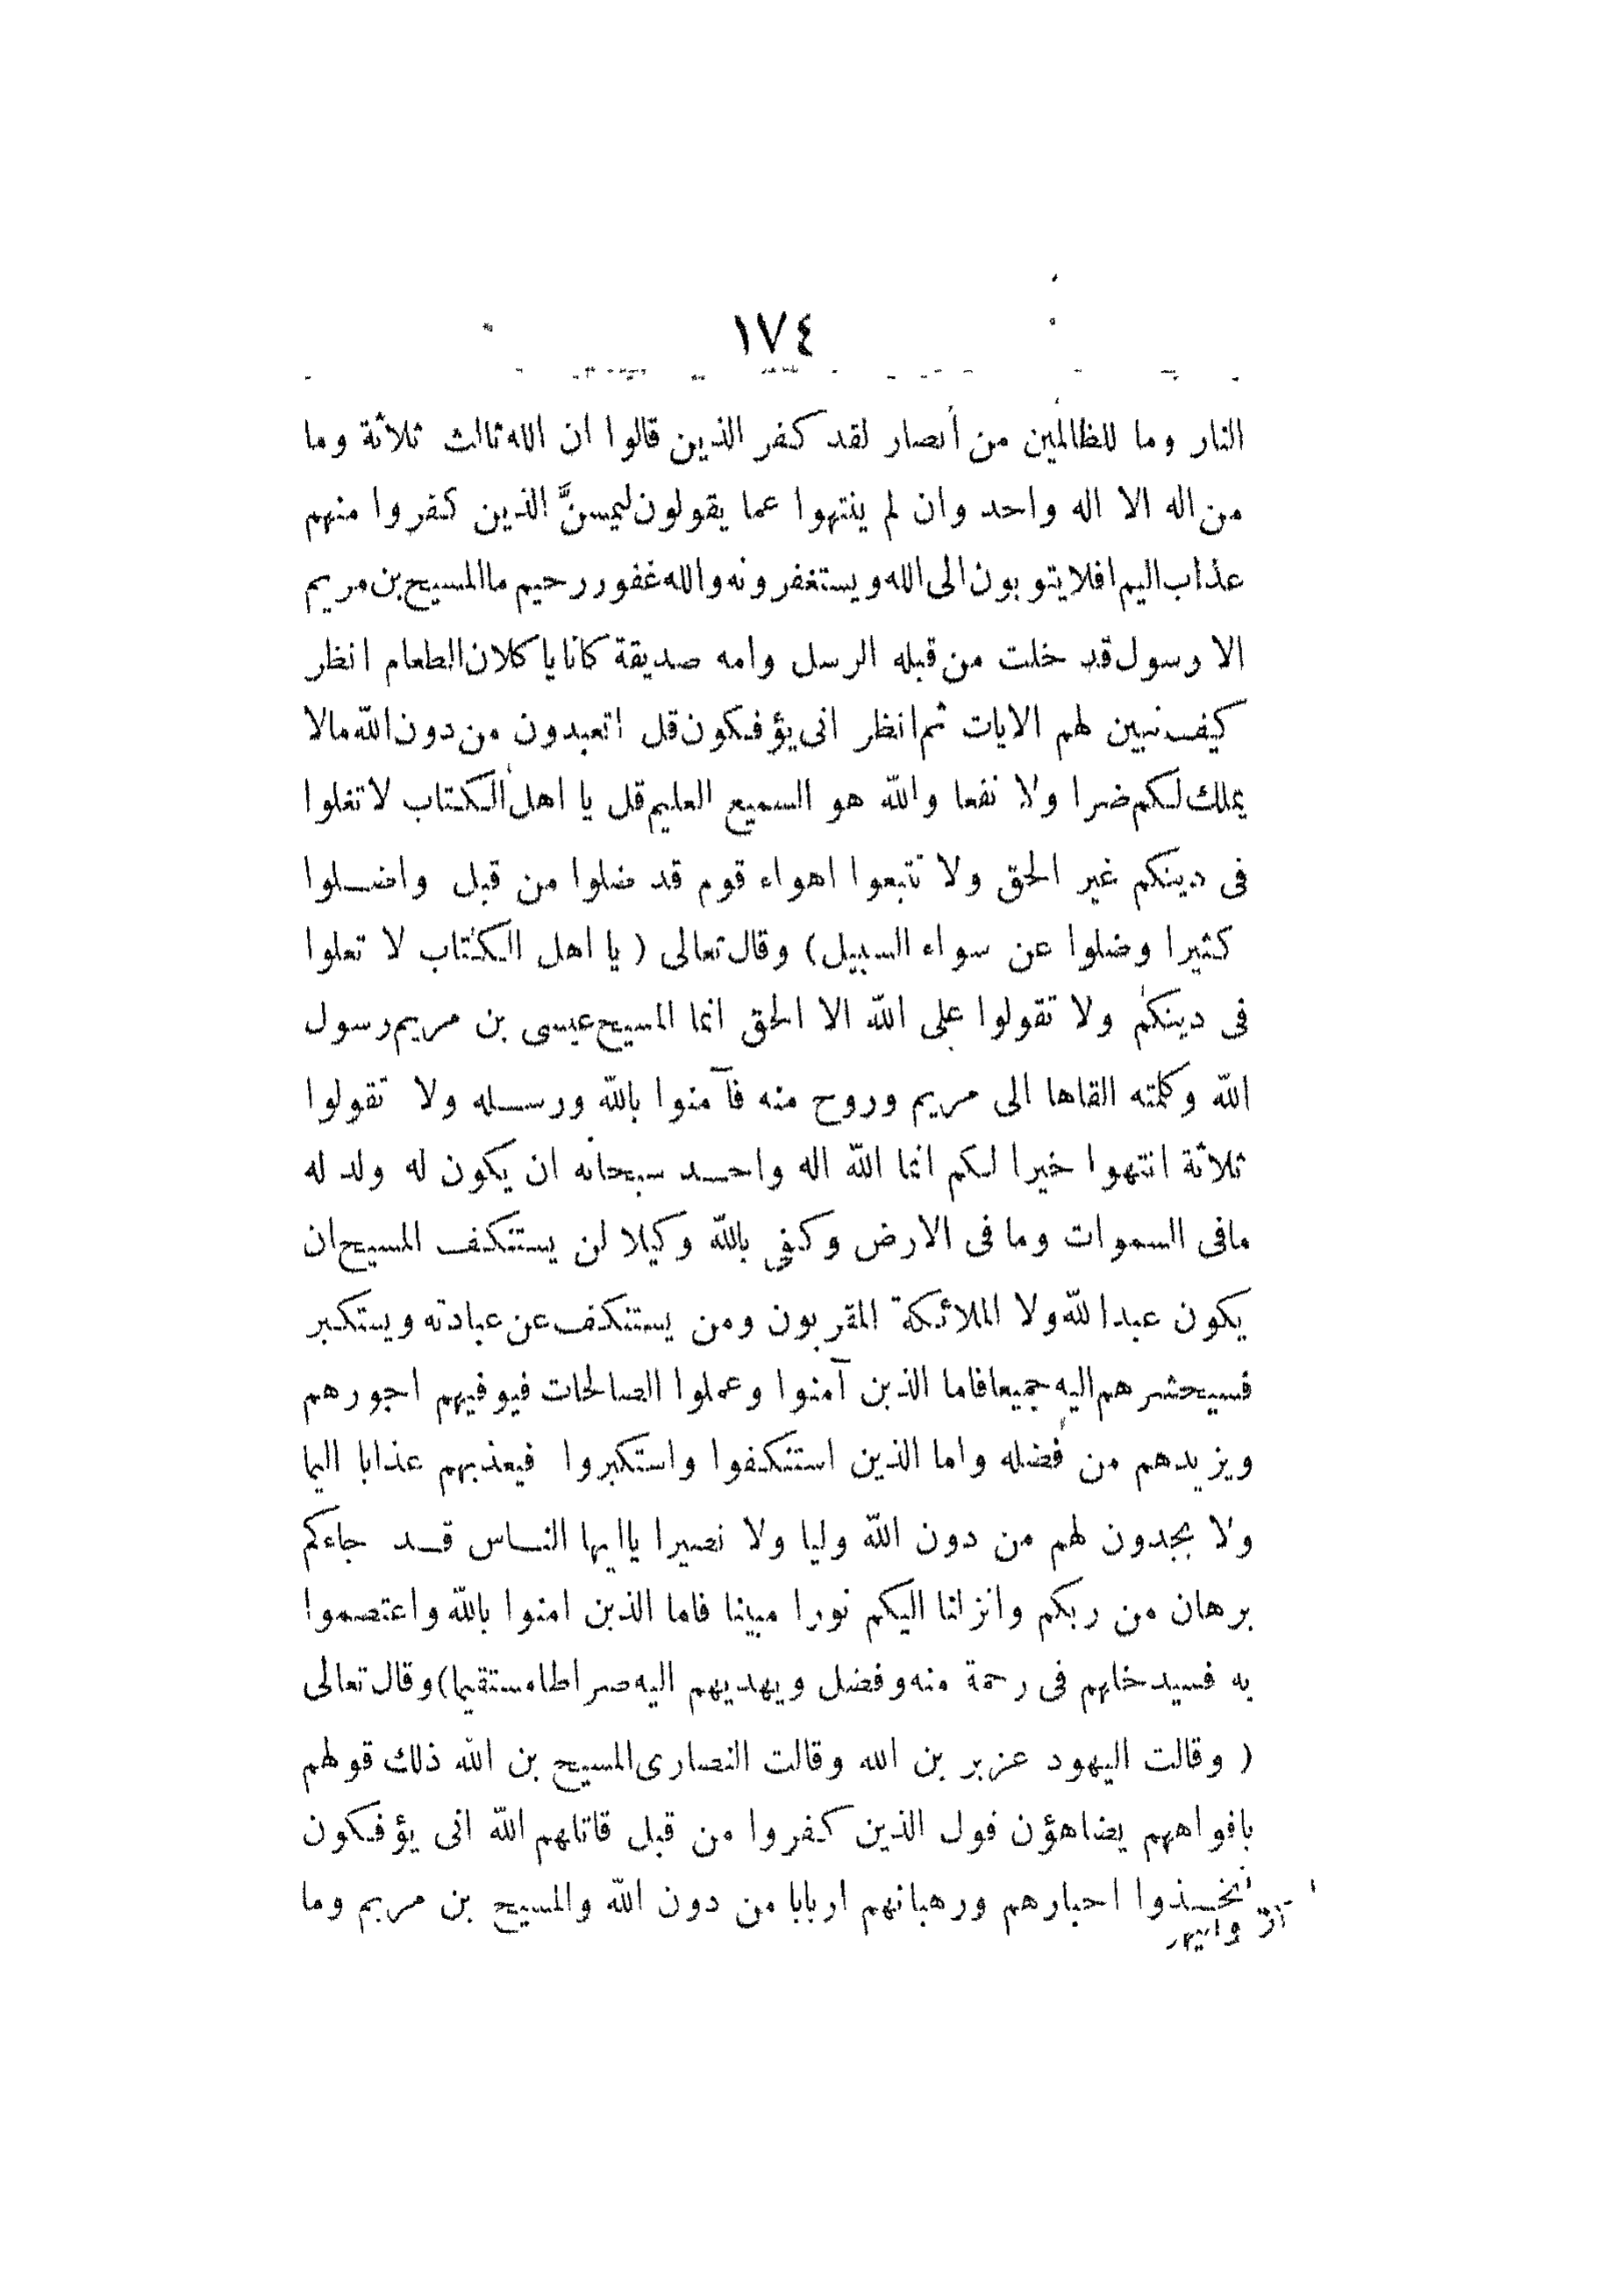 ١٧٤
النار وما للظالمين من أنصار لقد كفر الذين قالوا ان الله ثالث ثلاثة وما
من اله الا اله واحد وان لم ينتهوا عما يقولون ليمسنَّ الذين كفروا منهم
عذاب اليم افلا يتوبون الى الله ويستغفرونه والله غفور رحيم ما المسيح بن مريم
الا رسول قد خلت من قبله الرسل وامه صديقة كانا يا كلان الطعام انظر
كيف نبين لهم الايات ثم انظر انى يؤفكون قل اتعبدون من دون الله مالا
يملك لكم ضرا ولا نفعا والله هو السميع العليم قل يا اهل الكتاب لا تغلوا
فى دينكم غير الحق ولا تتبعوا اهواء قوم قد ضلوا من قبل واضلوا
كثيرا وضلوا عن سواء السبيل) وقال تعالى (يا اهل الكتاب لا تعلوا
فى دينكم ولا تقولوا على الله الا الحق انما المسيح عيسى بن مريم رسول
الله وكلمته القاها الى مريم وروح منه فآمنوا بالله ورسله ولا تقولوا
ثلاثة انتهوا خيرا لكم انما الله اله واحد سبحانه ان يكون له ولد له
مافى السموات وما فى الارض وكفى بالله وكيلا لن يستنكف المسيح ان
يكون عبدا لله ولا الملائكة المقربون ومن يستنكف عن عبادته ويستكبر
فسيحشرهم اليه جميعا فاما الذين آمنوا وعملوا الصالحات فيوفيهم اجورهم
ويزيدهم من فضله واما الذين استنكفوا واستكبروا فيعذبهم عذابا اليما
ولا يجدون لهم من دون الله وليا ولا نصيرا ياايها الناس قد جاءكم
برهان من ربكم وانزلنا اليكم نورا مبينا فاما الذين امنوا بالله واعتصموا
به فسيدخلهم فى رحمة منه وفضل ويهديهم اليه صراطا مستقيما) وقال تعالى
( وقالت اليهود عزير بن الله وقالت النصارى المسيح بن الله ذلك قولهم
بافواههم يضاهؤن قول الذين كفروا من قبل قاتلهم الله انى يؤفكون
اتخذوا احبارهم ورهبانهم اربابا من دون الله والمسيح بن مريم وما